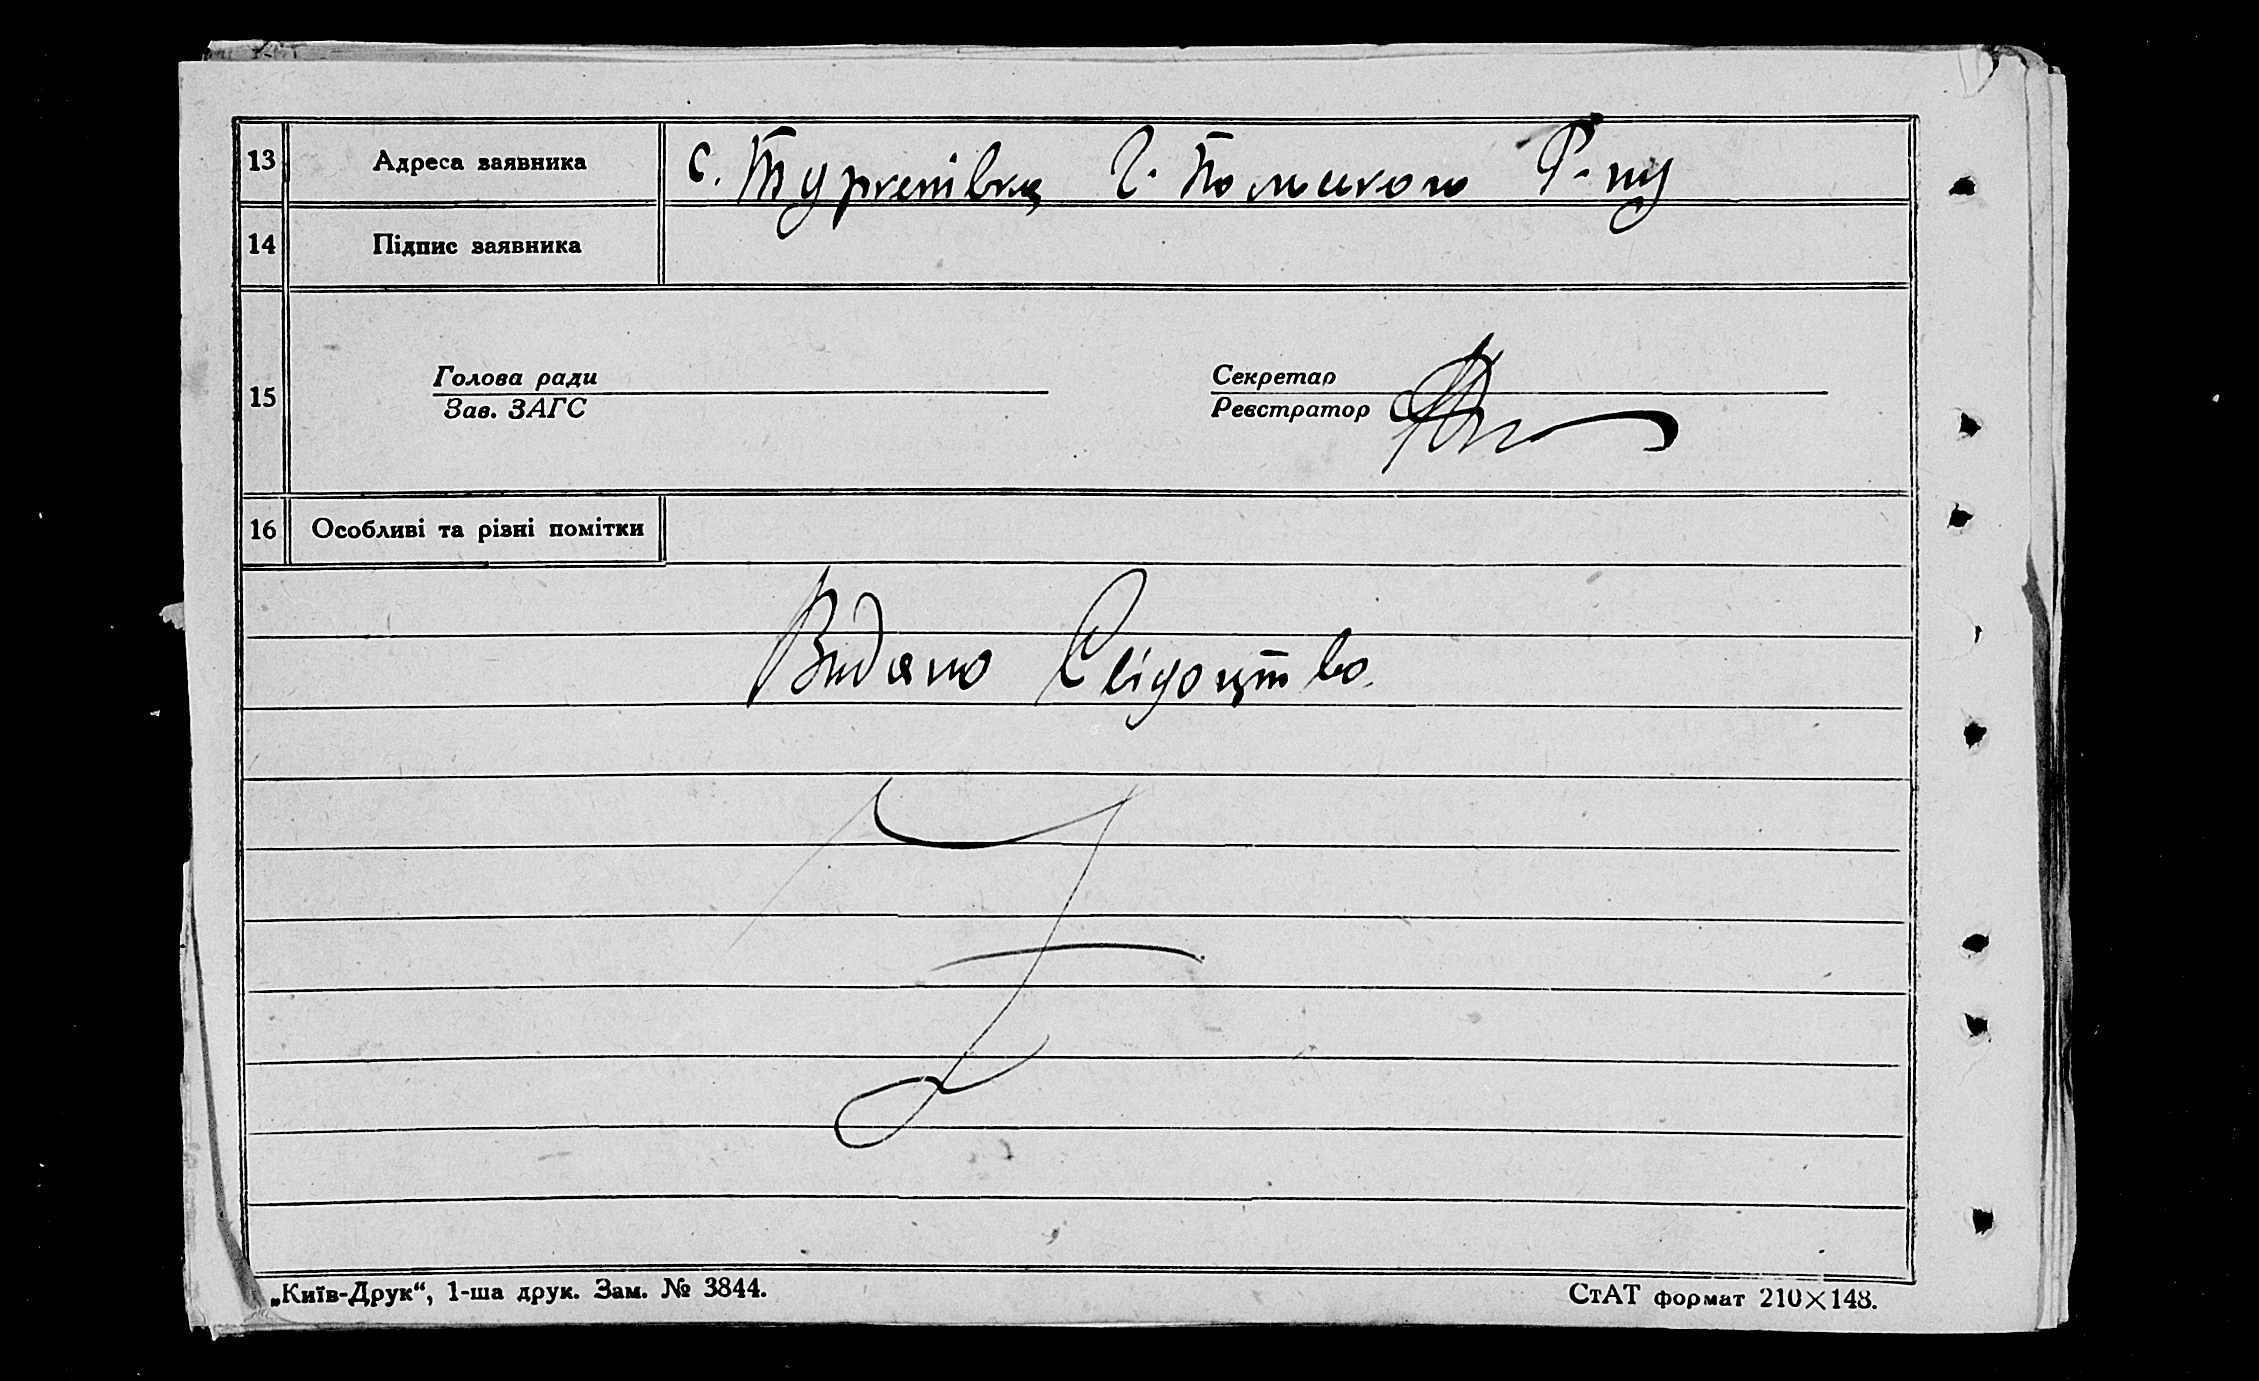 13 Адреса заявника с. Туркенівка Г. Польского Р-ну
14 Підпис заявника
15 Голова ради
Зав. ЗАГС
Секретар
Реєстратор
16 Особливі та різні помітки
Видано Свідоцтво.
„Київ-Друк“, 1-ша друк. Зам. № 3844.
СтАТ формат 210×148.